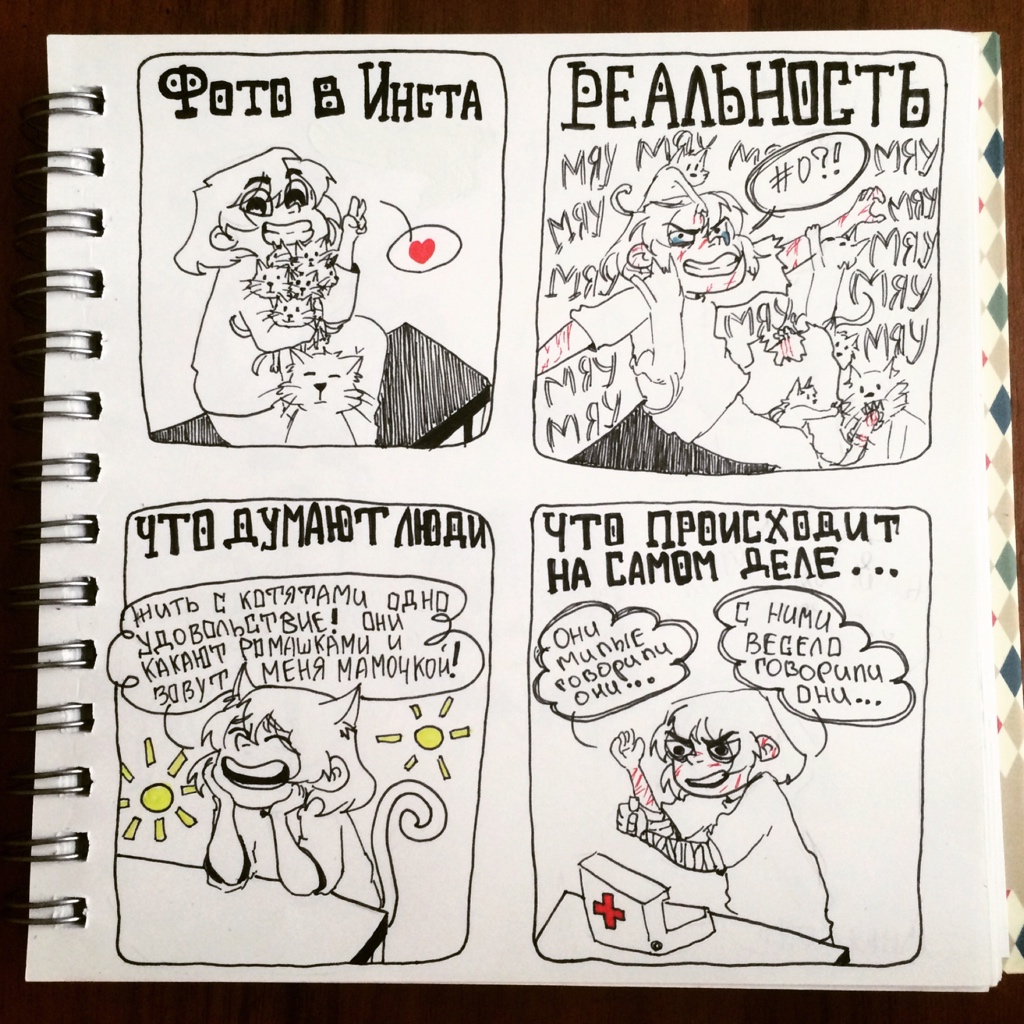 Фото в Инста
РЕАЛЬНОСТЬ
МЯУ МЯУ МЯУ МЯУ
#0?!
МЯУ МЯУ
МЯУ МЯУ
МЯУ МЯУ
МЯУ МЯУ
МЯУ
МЯУ
ЧТО ДУМАЮТ ЛЮДИ
ЖИТЬ С КОТЯТАМИ ОДНО
УДОВОЛЬСТВИЕ! ОНИ
КАКАЮТ РОМАШКАМИ И
ЗОВУТ МЕНЯ МАМОЧКОЙ!
ЧТО ПРОИСХОДИТ
НА САМОМ ДЕЛЕ...
ОНИ
МИЛЫЕ
ГОВОРИЛИ
ОНИ...
С НИМИ
ВЕСЕЛО
ГОВОРИЛИ
ОНИ...